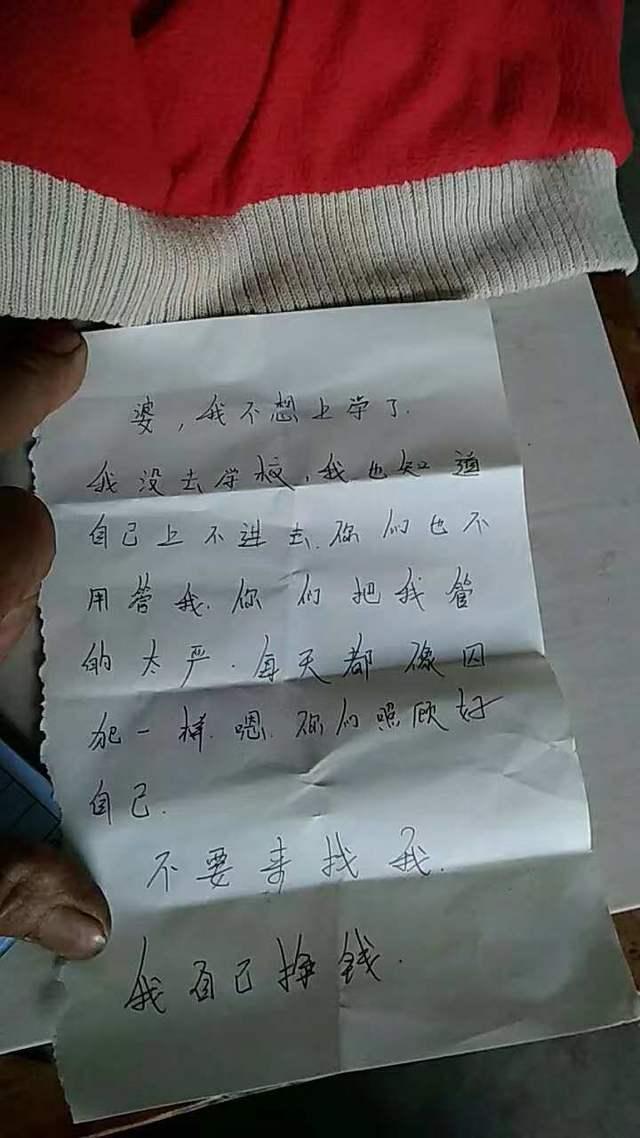 婆，我不想上学了.
我没去学校，我也知道
自己上不进去.你们也不
用管我.你们把我管
的太严.每天都像囚
犯一样.嗯.你们照顾好
自己.
不要来找我.
我自己挣钱.